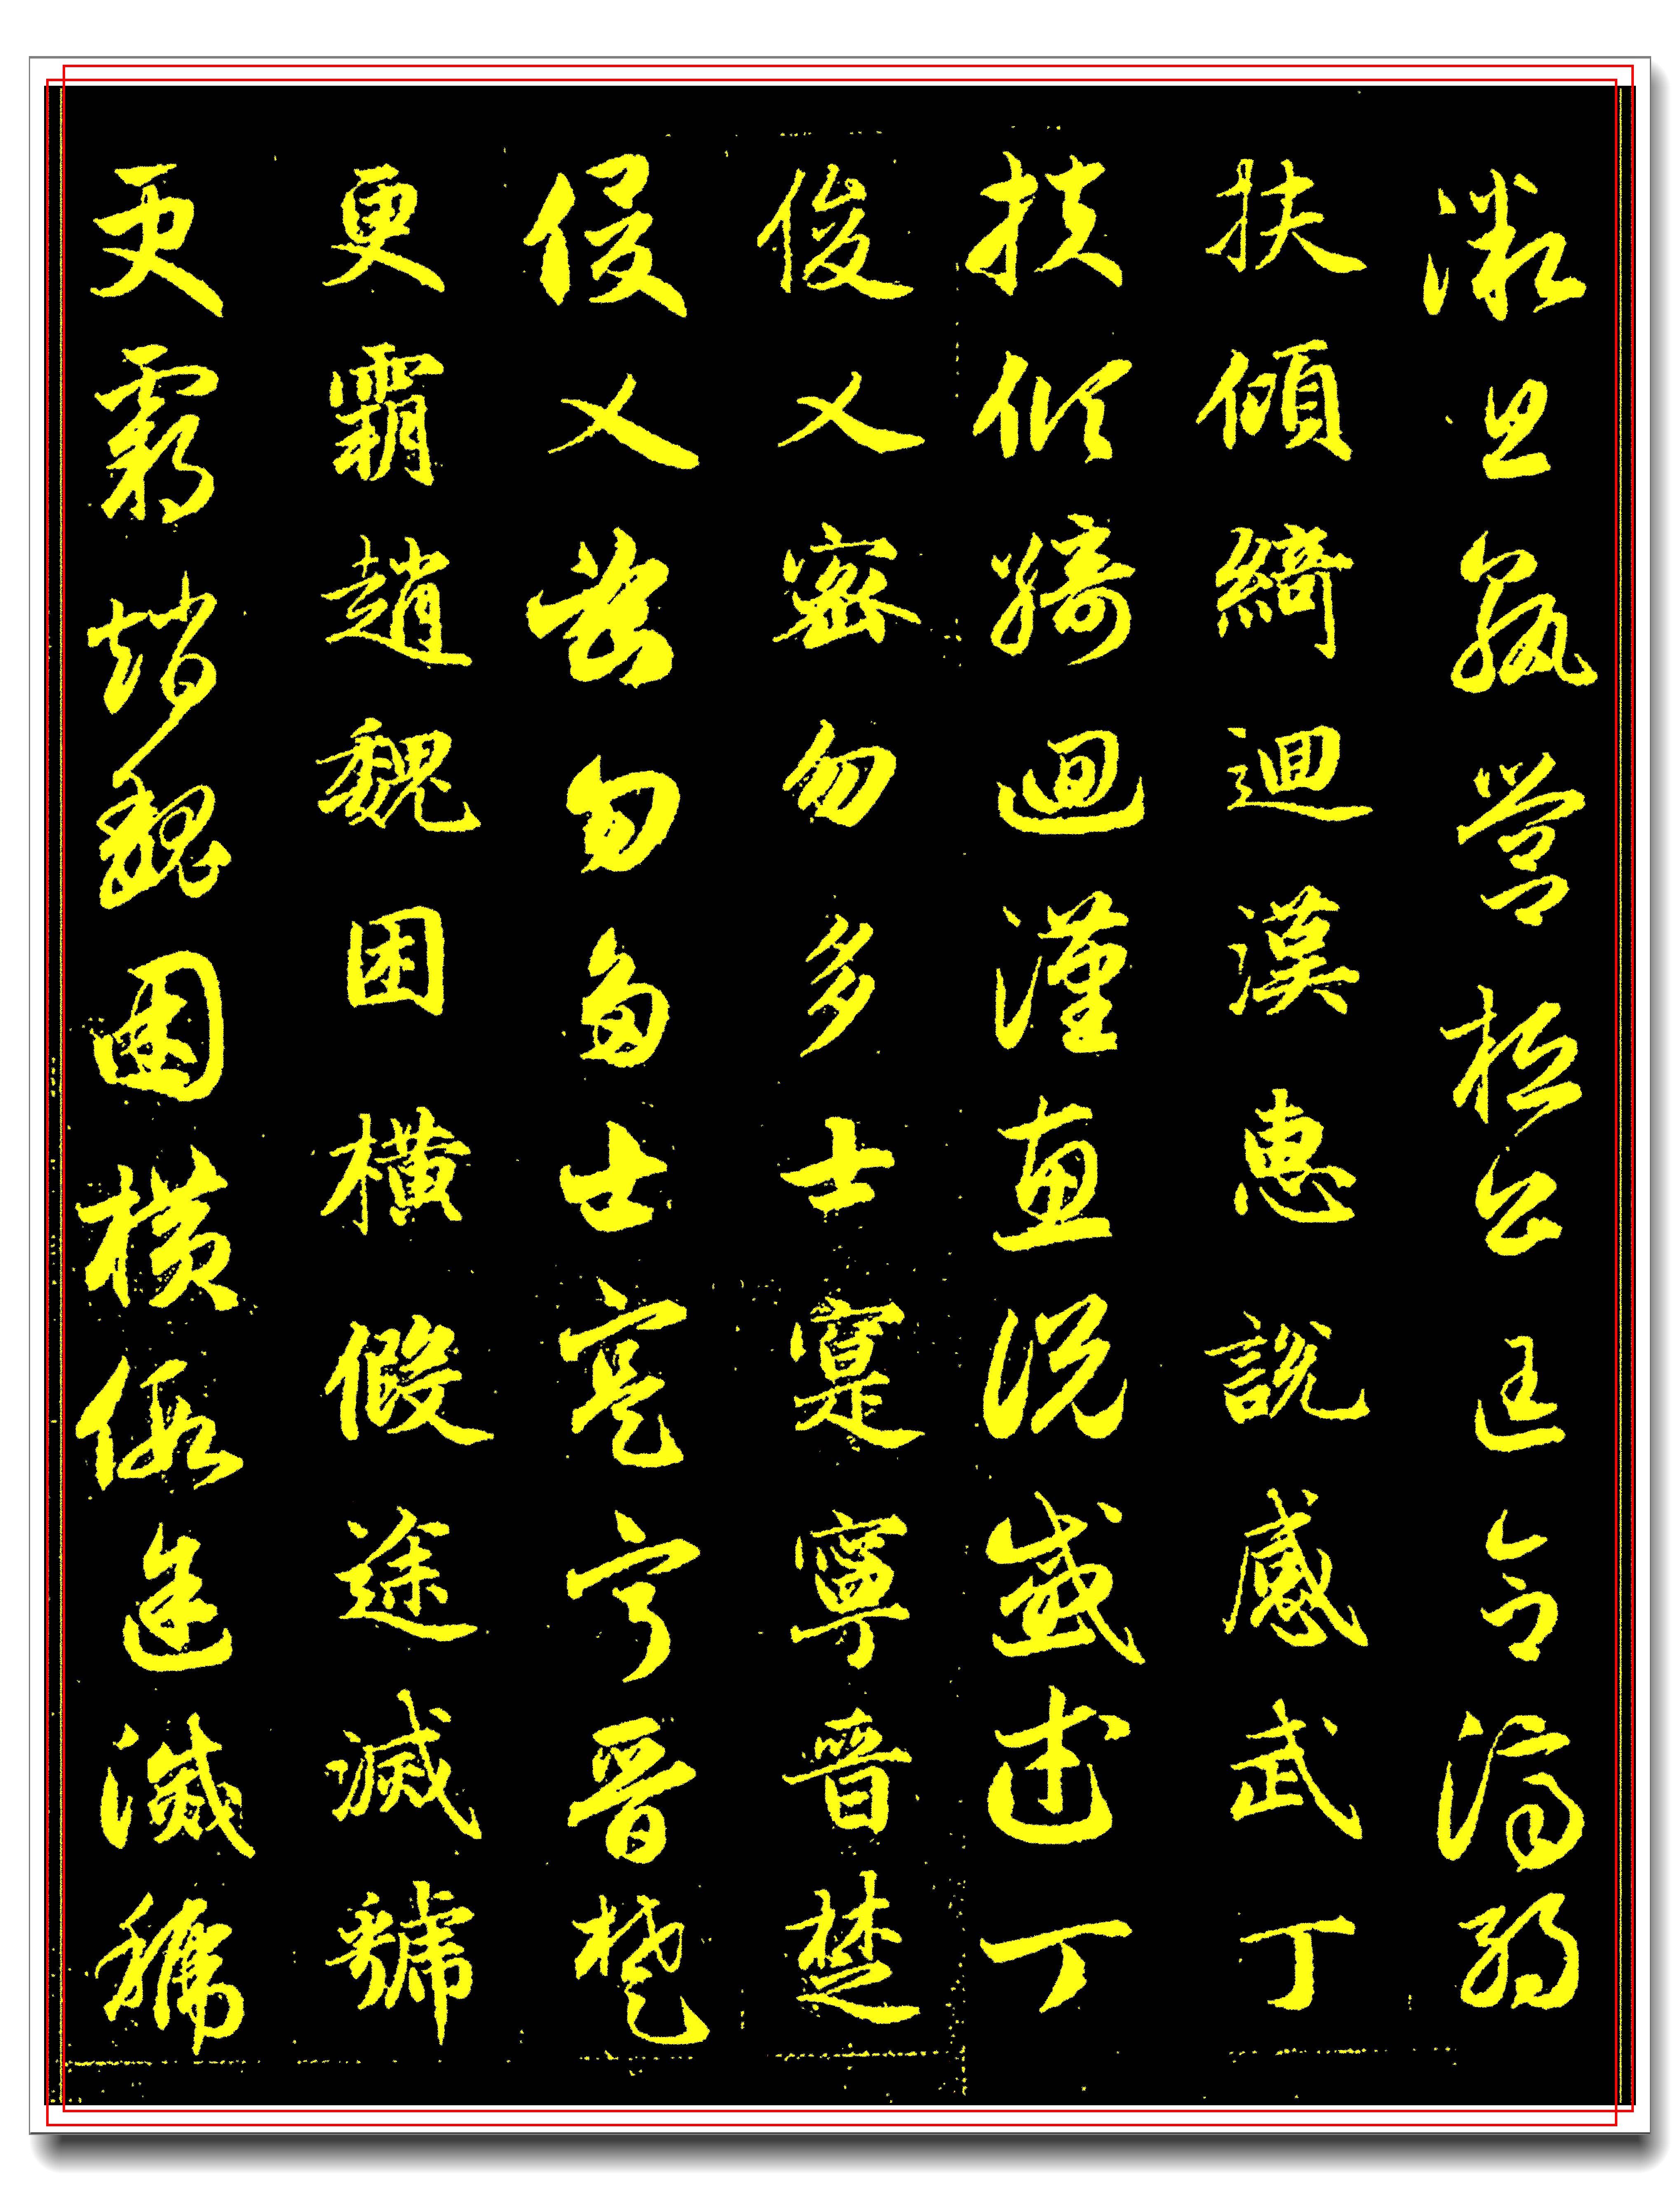 微旦孰營桓公匡合濟弱
扶傾綺迴漢惠說感武丁
扶傾綺迴漢惠說感武丁
俊乂密勿多士寔寧晉楚
俊乂密勿多士寔寧晉楚
更霸趙魏困橫假途滅虢
更霸趙魏困橫假途滅虢